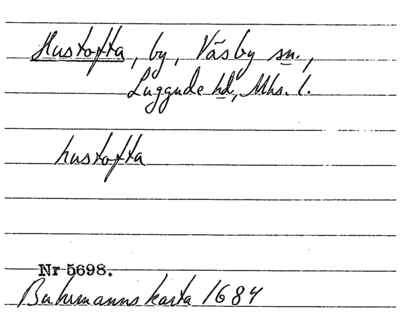 Hustofta, by, Väsby sn.,
Luggude hd, Mhs. l.
hustofta
Nr 5698.
Buhrmanns karta 1684